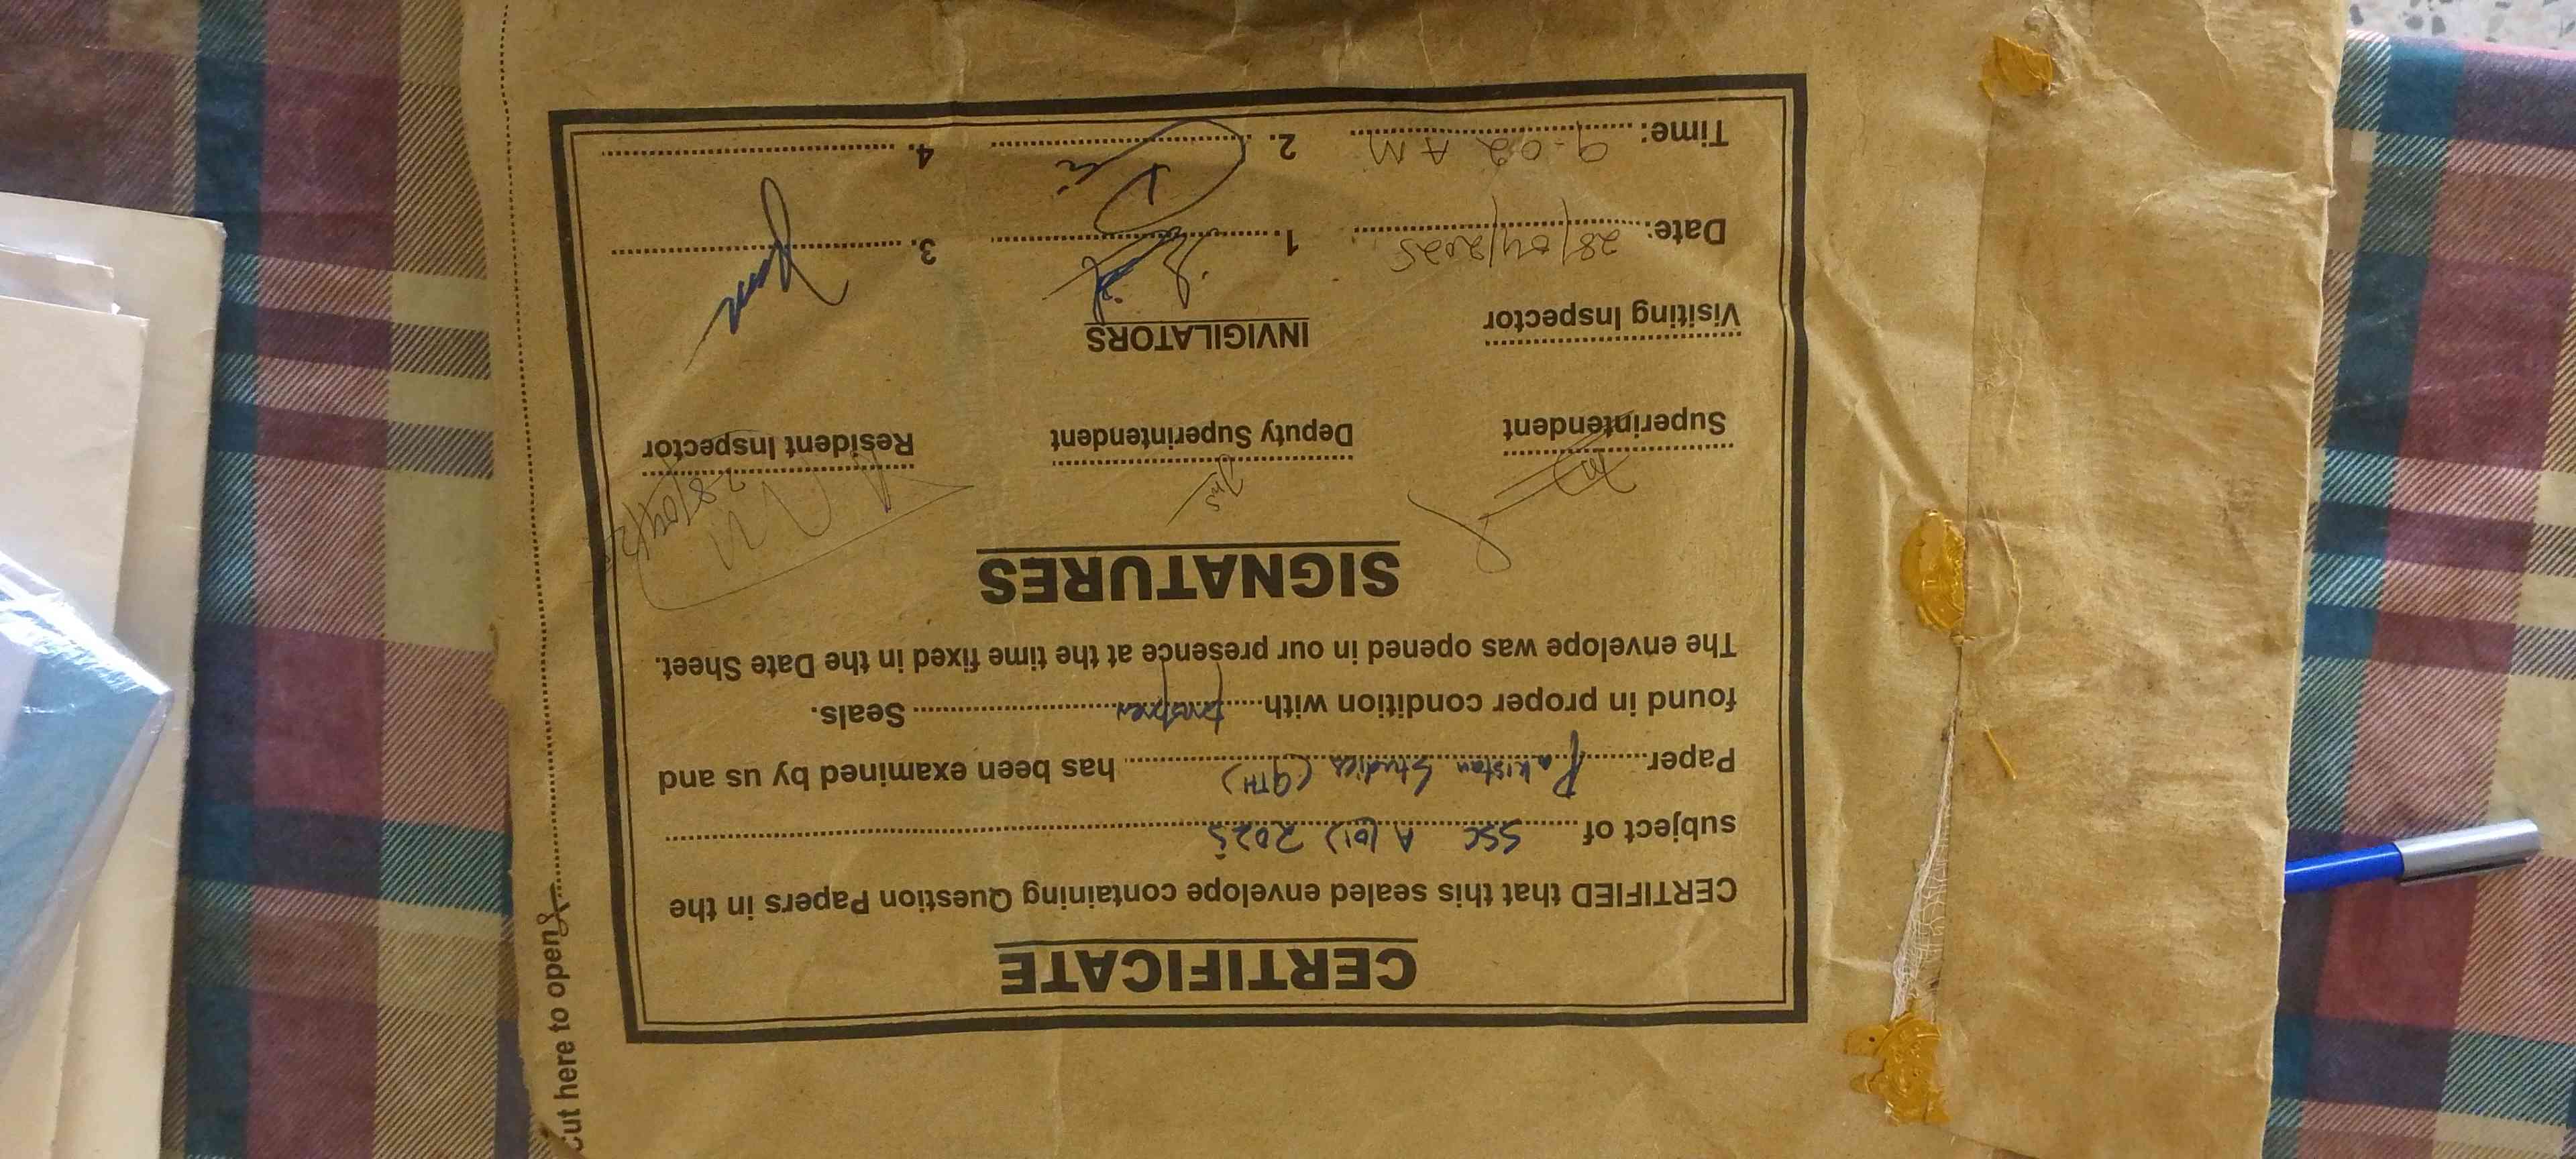 CERTIFICATE
CERTIFIED that this sealed envelope containing Question Papers in the
subject of SSC A(01) 2025
Paper Pakistan Studies (9TH) has been examined by us and
found in proper condition with Seals.
The envelope was opened in our presence at the time fixed in the Date Sheet.
SIGNATURES
Superintendent Deputy Superintendent Resident Inspector
28/04/25
Visiting Inspector INVIGILATORS
Date: 28/04/2025 1. 3.
Time: 9-02 AM 2. 4.
cut here to open